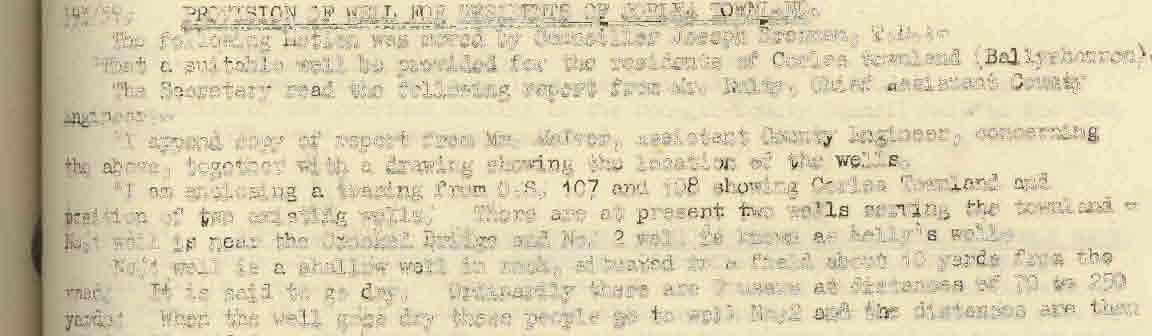 PROVISION OF WELL FOR RESIDENTS OF CORLEA TOWNLAND.
The following Motion was moved by Councillor Joseph Brennan,
"That a suitable well be provided for the residents of Corlea townland (Ballyshannon)"
The Secretary read the following report from Mr. Chief Assistant County
Engineer:-
"I append copy of report from Mr. McIver, Assistant County Engineer, concerning
the above, together with a drawing showing the location of the wells.
"I am enclosing a tracing from O.S. 107 and 108 showing Corlea Townland and
position of two existiig wells. There are at present two wells serving the townland -
No.1 well is near the Crooked Bridge and No. 2 well is known as Kelly's well.
No.1 well is a shallow well in rock, situated in a field about 10 yards from the
road. It is said to go dry. Ordinarily there are 7 users at distances of 70 to 250
yards. When the well goes dry these people go to well No.2 and the distances are then